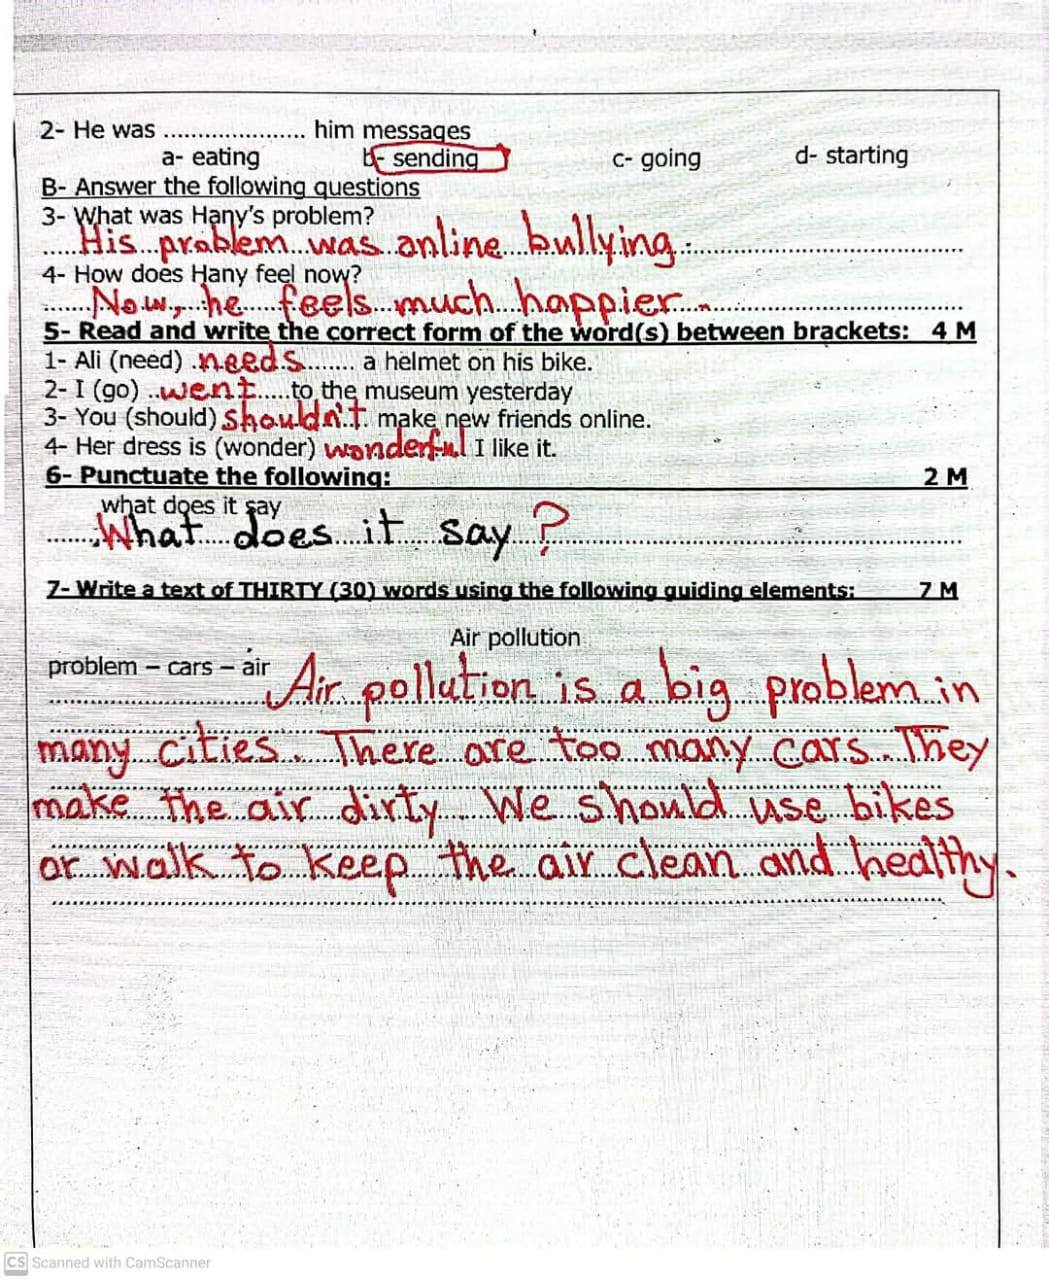 2- He was ..................... him messages
a- eating b- sending c- going d- starting
B- Answer the following questions
3- What was Hany's problem?
His problem was online bullying.
4- How does Hany feel now?
Now, he feels much happier.
5- Read and write the correct form of the word(s) between brackets: 4 M
1- Ali (need) needs a helmet on his bike.
2- I (go) went to the museum yesterday
3- You (should) shouldn't make new friends online.
4- Her dress is (wonder) wonderful I like it.
6- Punctuate the following: 2 M
what does it say
What does it say ?
7- Write a text of THIRTY (30) words using the following guiding elements: 7 M
Air pollution
problem – cars – air
Air pollution is a big problem in
many cities. There are too many cars. They
make the air dirty. We should use bikes
or walk to keep the air clean and healthy.
CS Scanned with CamScanner